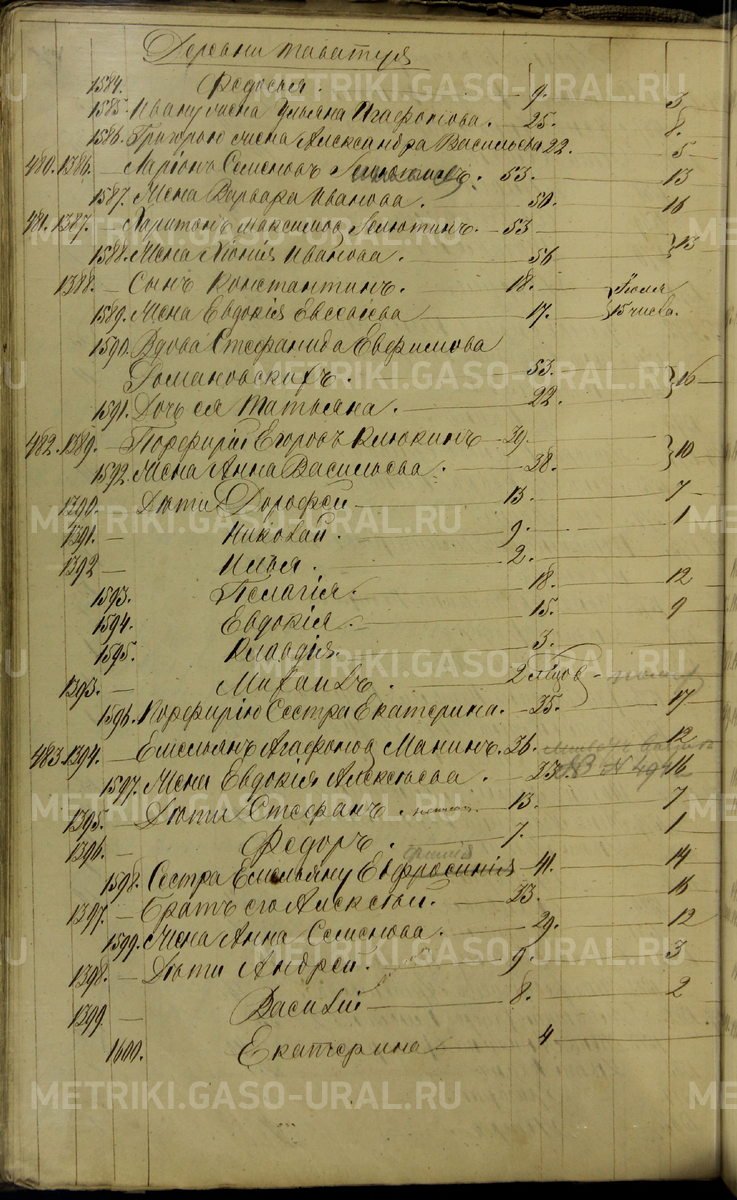 Деревни Таватуя
1584. Федосья. 9. 3
1585. Ивану жена Ульяна Агафонова. 25. 8.
1586. Григорью жена Александра Васильева 22. 5
480. 1386. Ларіонъ Семеновъ 53. 13
1587. Жена Варвара Иванова. 50. 16
481. 1387. Харитонъ Максимовъ Телютинъ. 53
1588. Жена Хіонія Иванова. 56 13
1388. Сынъ Константинъ. 18. Іюля
1589. Жена Евдокія Евсеіева 17. 15 числа.
1590. Вдова Стефанида Евфимова
Романовскихъ. 53. 16
1591. Дочь ея Татьяна. 22.
482. 1389. Порфирій Егоровъ Клюкинъ 39.
1592. Жена Анна Васильева. 38. 10
1390. Дѣти Дорофей 13. 7
1391. Николай. 9. 1
1392 Илья. 2.
1593. Пелагія. 18. 12
1594. Евдокія. 15. 9
1595. Клавдія. 3.
1393. Михаилъ.
1596. Порфирію Сестра Екатерина. 35. 17
483. 1394. Емельянъ Агафоновъ Манинъ. 36. 12
1597. Жена Евдокія Алексѣева. 33. 16
1395. Дѣти Стефанъ. 13. 7
1396. Федоръ. 7. 1
1598. Сестра Емельяну Евфросинія 41. 14
1397. Братъ его Алексѣй. 33. 16
1599. Жена Анна Семенова. 29. 12
1398. Дѣти Андрей. 9. 3
1399. Василій 8. 2
1600. Екатерина 4
METRIKI.GASO-URAL.RU